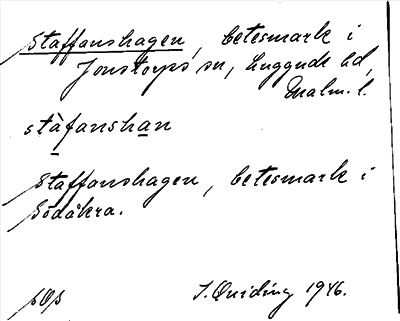 Staffanshagen, betesmark i
Jonstorps sn, Luggude hd,
Malm. l.
stàfanshan
Staffanshagen, betesmark i
Södåkra.
I. Quiding 1946.